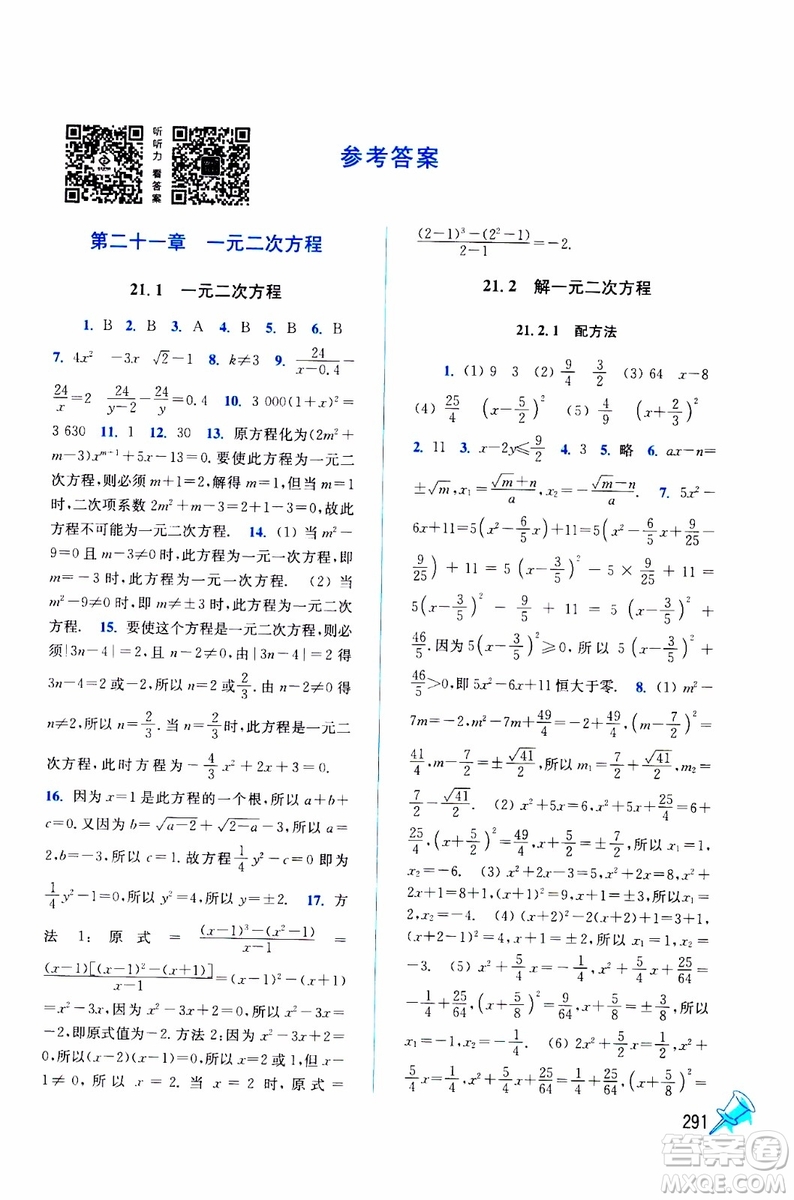 听听力 看答案
参考答案
第二十一章 一元二次方程
21.1 一元二次方程
1. B 2. B 3. A 4. B 5. B 6. B
7. 4x² −3x √2−1 8. k≠3 9. 24/(x−0.4) −
24/x=2 24/(y−2)−24/y=0.4 10. 3 000(1+x)²=
3 630 11. 1 12. 30 13. 原方程化为(2m²+
m−3)x^(m+1)+5x−13=0. 要使此方程为一元二
次方程,则必须 m+1=2,解得 m=1. 当 m=1
时,二次项系数 2m²+m−3=2+1−3=0,故此
方程不可能为一元二次方程. 14. (1) 当 m²−
9=0 且 m−3≠0 时,此方程为一元一次方程,即
m=−3 时,此方程为一元一次方程. (2) 当
m²−9≠0 时,即 m≠±3 时,此方程为一元二次
方程. 15. 要使这个方程是一元二次方程,则必
须|3n−4|=2且 n−2≠0,由|3n−4|=2 得
3n−4=2或−2,所以 n=2或 2/3. 又因为 n−2≠0,
n≠2,所以 n=2/3. 当 n=2/3 时,此方程是一元二
次方程,此时方程为−4/3 x²+2x+3=0.
16. 因为 x=1 是此方程的一个根,所以 a+b+
c=0. 又因为 b=√(a−2)+√(2−a)−3,所以 a=
2,b=−3,所以 c=1. 故方程 1/4 y²−c=0 即为
1/4 y²−1=0,所以 y²=4,y=±2. 17. 方
法 1:原式=((x−1)³−(x²−1))/(x−1)=
((x−1)[(x−1)²−(x+1)])/(x−1)=(x−1)²−(x+
1)=x²−3x. 因为 x²−3x+2=0,所以 x²−3x=
−2,即原式值为−2. 方法 2:因为 x²−3x+2=
0,所以(x−1)(x−2)=0,所以 x−1=0或 x−
2=0. 因为 x≠1,所以 x=2. 当 x=2 时,原式=
((2−1)³−(2²−1))/(2−1)=−2.
21.2 解一元二次方程
21.2.1 配方法
1. (1) 9 3 (2) 9/4 3/2 (3) 64 x−8
(4) 25/4 (x−5/2)² (5) 4/9 (x+2/3)²
2. 11 3. x−2y≤9/2 4. 3 5. 略 6. ax−n=
±√m,x₁=(√m+n)/a,x₂=−(√m−n)/a. 7. 5x²−
6x+11=5(x²−6/5x)+11=5(x²−6/5x+
9/25)−5×9/25+11=5(x−3/5)²−5×
(x−3/5)²−9/5+11=5(x−3/5)²+
46/5. 因为 5(x−3/5)²≥0,所以 5(x−3/5)²+
46/5>0,即 5x²−6x+11 恒大于零. 8. (1) m²−
7m=−2,m²−7m+49/4=−2+49/4,(m−7/2)²=
41/4,m−7/2=±√41/2,所以 m₁=7/2+√41/2,m₂=
7/2−√41/2. (2) x²+5x=6,x²+5x+25/4=6+
25/4,(x+5/2)²=49/4,x+5/2=±7/2,所以 x₁=1,
x₂=−6. (3) x²+2x−3=5,x²+2x=8,x²+
2x+1=8+1,(x+1)²=9,x+1=±3,所以 x₁=
2,x₂=−4. (4) x²+2x=3,x²+2x+1=3+1,
(x+1)²=4,x+1=±2,所以 x₁=1,x₂=
−3. (5) x²+5/4x=−1/4,x²+5/4x+25/64=
−1/4+25/64,(x+5/8)²=9/64,x+5/8=±3/8,所以
x₁=−1,x₂=−1/4. (6) x²+5/4x−1/4=0,x²+
5/4x=1/4,x²+5/4x+25/64=1/4+25/64,(x+5/8)²=
291
答案圈
MXQE.COM